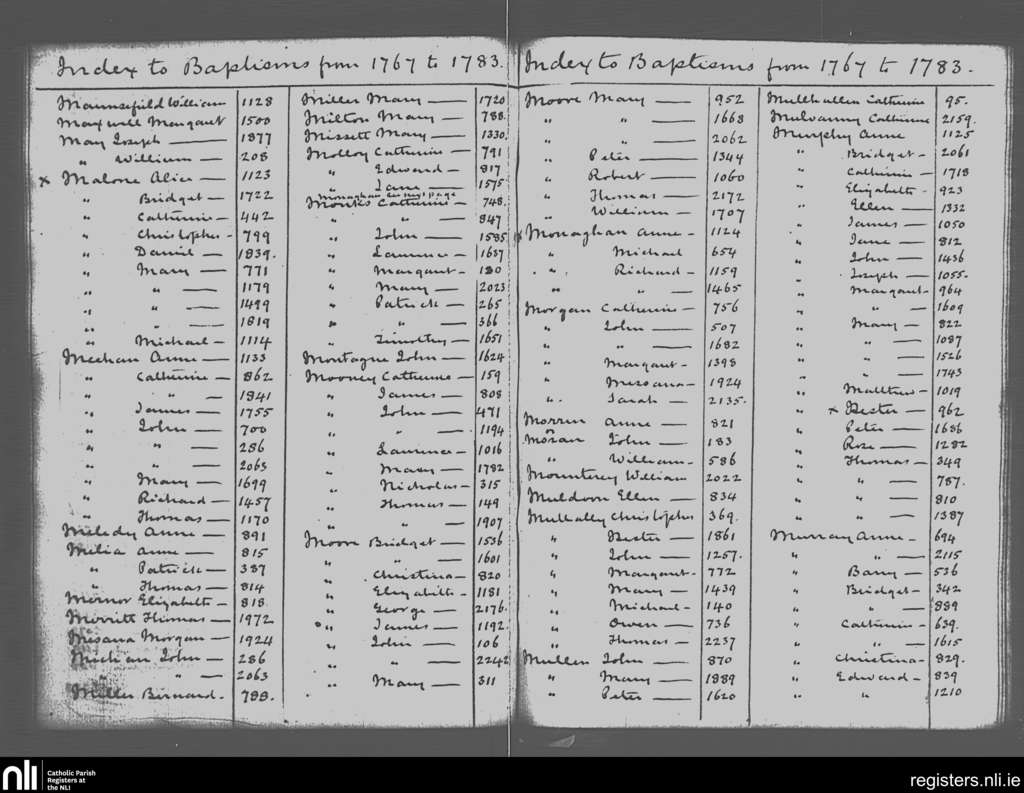 Index to Baptisms from 1767 to 1783.
Maunsefild William 1128
Maxwell Margaret 1500
May Joseph — 1877
" William — 208
x Malone Alice — 1123
" Bridget — 1722
" Catherine — 442
" Christopher — 799
" Daniel — 1839.
" Mary — 771
" " — 1179
" " — 1499
" " — 1819
" Michael — 1114
Meehan Anne — 1133
" Catherine — 862
" " — 1841
" James — 1755
" John — 700
" " — 286
" " — 2065
" Mary — 1699
" Richard — 1457
" Thomas — 1170
Meledy Anne — 891
Melia Anne — 815
" Patrick — 387
" Thomas — 814
Mernor Elizabeth — 818.
Merritt Thomas — 1972
Mesana Morgan — 1924
Michian John — 286
" " — 2063
Miller Bernard. 788.
Miller Mary — 1720
Milton Mary — 788.
Missett Mary — 1330.
Molloy Catherine — 791
" Edward — 817
" Jane — 1575
Monaghan see next page
Monks Catherine — 748.
" " — 847
" John — 1585
" Laurence — 1637
" Margaret — 180
" Mary — 2023
" Patrick — 265
" " — 366
" Timothy — 1651
Montague John — 1624
Mooney Catherine — 159
" James — 808
" John — 471
" " — 1194
" Laurence — 1016
" Mary — 1782
" Nicholas — 315
" Thomas — 149
" " — 1907
Moore Bridget — 1536
" " — 1601
" Christina — 820
" Elizabeth — 1181
" George — 2176.
" James — 1192.
" John — 106
" " — 2242
" Mary — 311
Index to Baptisms from 1767 to 1783.
Moore Mary — 952
" " — 1668
" " — 2062
" Peter — 1344
" Robert — 1060
" Thomas — 2172
" William — 1707
x Monaghan Anne — 1124
" Michael 654
" Richard — 1159
" " — 1465
Morgan Catherine — 756
" John — 507
" " — 1682
" Margaret — 1398
" Messana — 1924
" Sarah — 2135.
Morrin Anne — 821
or
Moran John — 183
" William — 586
Mounteney William 2022
Muldoon Ellen — 834
Mullally Christopher 369.
" Hester — 1861
" John — 1257.
" Margaret — 772
" Mary — 1439
" Michael — 140
" Owen — 736
" Thomas — 2237
Mullen John — 870
" Mary — 1889
" Peter — 1620
Mullhallen Catherine 95.
Mulvanny Catherine 2159.
Murphy Anne 1125
" Bridget — 2061
" Catherine — 1718
" Elizabeth — 923
" Ellen — 1332
" James — 1050
" Jane — 812
" John — 1436
" Joseph — 1055.
" Margaret — 964
" " — 1609
" Mary — 822
" " — 1087
" " — 1526
" " — 1743
" Matthew — 1019
" x Hester — 962
" Peter — 1686
" Rose — 1282
" Thomas — 349
" " — 787.
" " — 810
" " — 1387
Murray Anne — 694
" " — 2115
" Barry — 536
" Bridget — 342
" " — 889
" Catherine — 639.
" " — 1615
" Christina — 829.
" Edward — 839
" " 1210
nli
Catholic Parish
Registers at
the NLI
registers.nli.ie